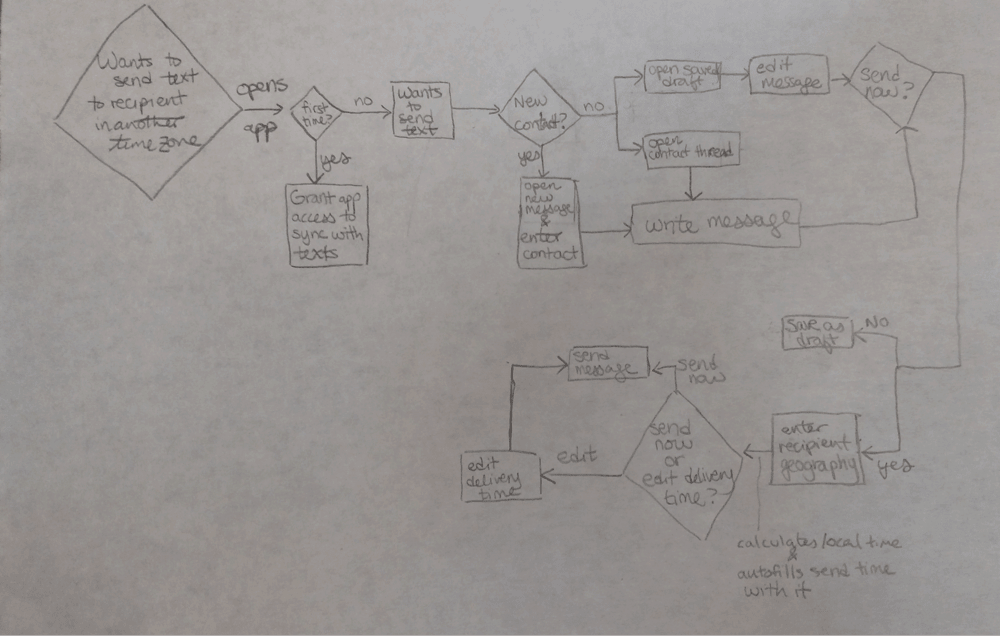 Wants to
send text
to recipient
in another
time zone
opens
app
first
time?
no
yes
Grant app
access to
sync with
texts
Wants
to
send
text
New
contact?
no
yes
open
new
message
&
enter
contact
open saved
draft
edit
message
send
now?
open
contact thread
write message
No
save as
draft
yes
enter
recipient
geography
calculates local time
&
autofills send time
with it
send
now
or
edit delivery
time?
send
now
send
message
edit
edit
delivery
time